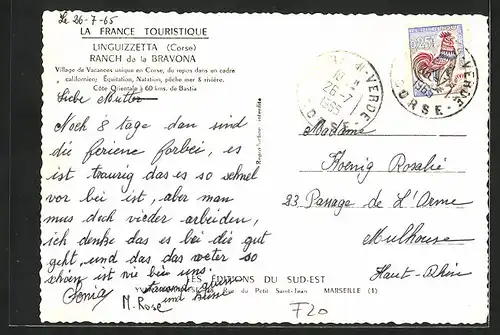 Le 26-7-65
LA FRANCE TOURISTIQUE
LINGUIZZETTA (Corse)
RANCH de la BRAVONA
Village de Vacances unique en Corse, du repos dans en cadre
californien: Equitation, Natation, pêche mer & rivière.
Côte Orientale à 60 kms. de Bastia
Liebe Mutter
Noch 8 tage dan sind
die feriene forbei, es
ist traurig das es so schnel
vor bei ist, aber man
mus dich vieder arbeiden,
ich denke das es bei die gut
geht, und das das weter so
schoen ist wie bei uns.
Sonia
M. Rose
und
Reproduction interdite
LES EDITIONS DU SUD-EST
Rue du Petit Saint-Jean MARSEILLE (1)
0,25
VERDE
26-7
1965
CORSE
VERDE
1965
CORSE
Madame
Koenig Rosalie
23 Passage de L'Orme
Mulhouse
Haut-Rhin
F20